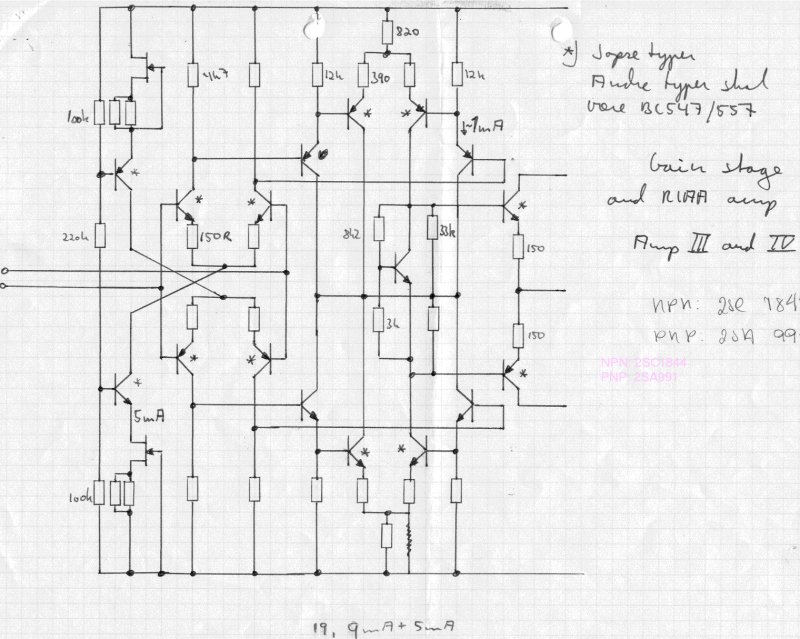 820
4k7
12k
390
12k
100k
~1mA
*) Japse typer
Andre typer skal
være BC547/557
Gain stage
and RIAA amp
Amp III and IV
220k
150R
8k2
33k
150
3k
150
NPN: 2SC 184
PNP: 2SA 99
NPN: 2SC1844
PNP: 2SA991
5mA
100k
19, 9mA + 5mA